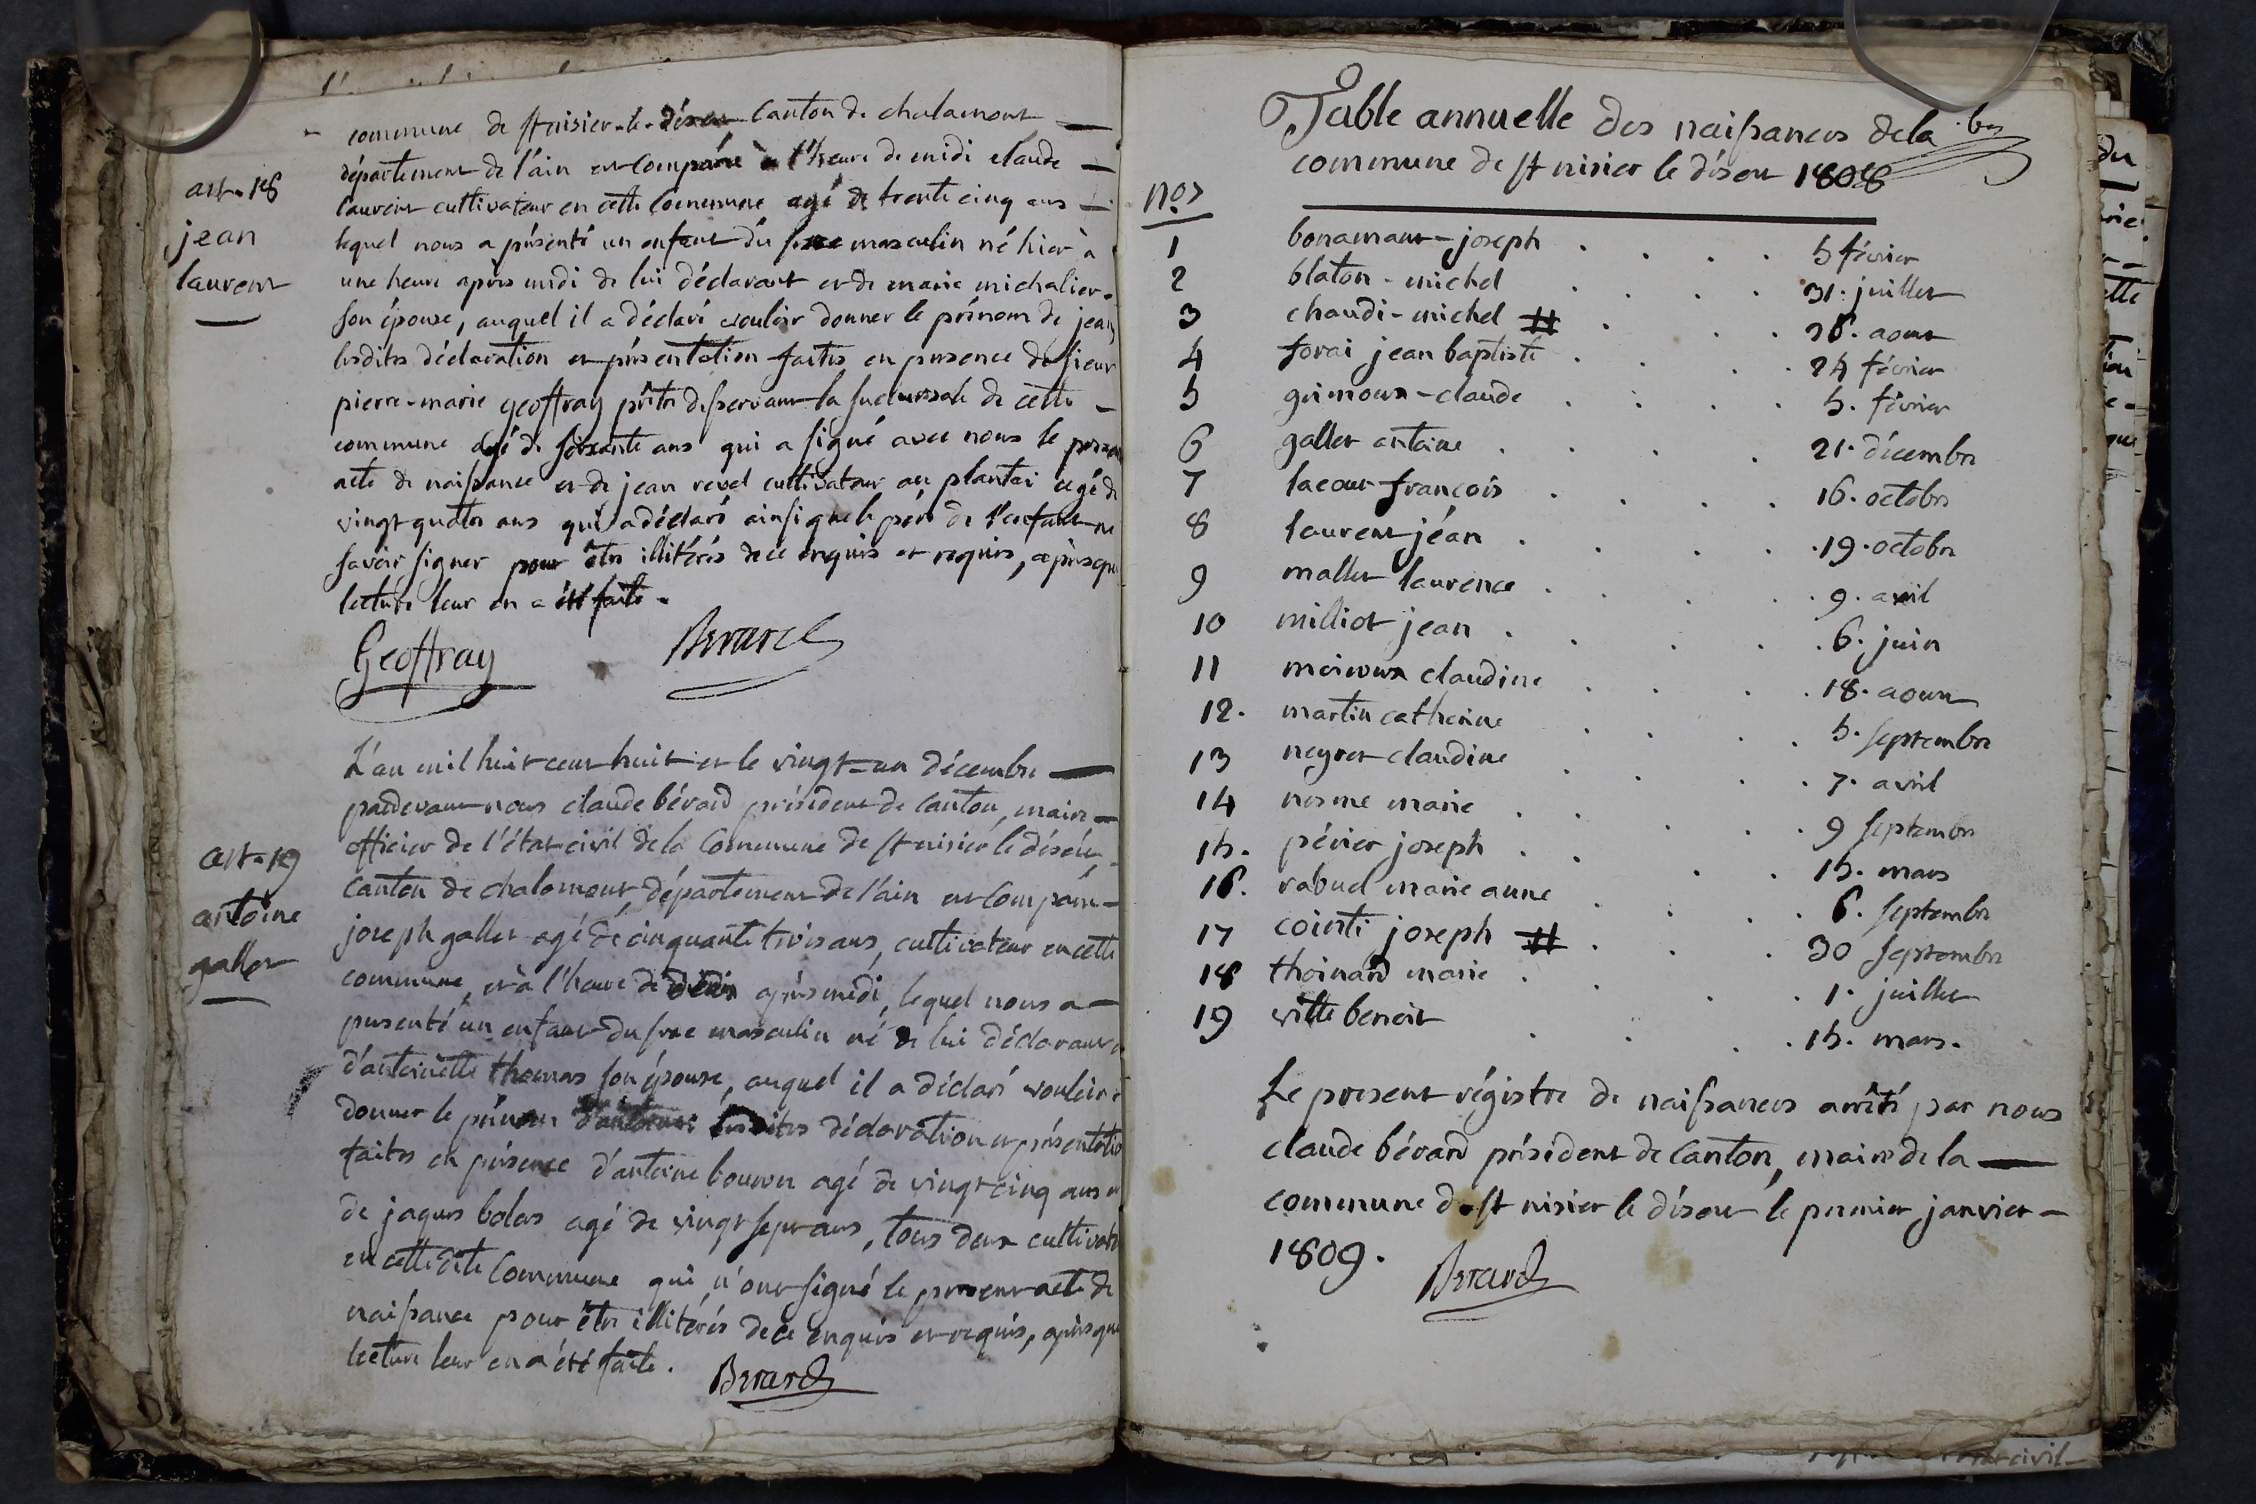 commune de st nisier-le-désert canton de chalamont
département de l'ain est comparu à l'heure de midi claude
art. 18
laurent cultivateur en cette commune agé de trente cinq ans
jean
lequel nous a présenté un enfant du sexe masculin né hier à
laurent
une heure après midi de lui déclarant et de marie michalier
son épouse, auquel il a déclaré vouloir donner le prénom de jean
lesdites déclaration et présentation faites en presence de sieur
pierre-marie geoffray prêtre desservant la succursale de cette
commune agé de soixante ans qui a signé avec nous le present
acte de naissance et de jean revel cultivateur au plantai agé de
vingt quatre ans qui a déclaré ainsi que le père de l'enfant ne
savoir signer pour être illitérés de ce enquis et requis, après que
lecture leur en a été faite.
Geoffray Berard
L'an mil huit cent huit et le vingt-un décembre
pardevant nous claude bérard président de canton, maire
officier de l'état civil de la commune de st nisier le désert,
art. 19
canton de chalamont, département de l'ain est comparu
antoine
joseph gallet agé de cinquante trois ans, cultivateur en cette
gallet
commune, et à l'heure de deux après midi, lequel nous a
presenté un enfant du sexe masculin né de lui déclarant et
d'antoinette thomas son épouse, auquel il a déclaré vouloir
donner le prénom d'antoine lesdites déclaration et présentation
faites en présence d'antoine bouvier agé de vingt cinq ans et
de jaques bolos agé de vingt sept ans, tous deux cultivateurs
en cette dite commune qui n'ont signé le present acte de
naissance pour être illitérés de ce enquis et requis, après que
lecture leur en a été faite.
Berard
Table annuelle des naissances de la
commune de st nisier le désert 1808
nos
1 bonamant-joseph 5 février
2 blaton-michel 31. juillet
3 chaudi-michel # 26. aout
4 forai jean baptiste 24 février
5 grimoux-claude 5. février
6 gallet antoine 21. décembre
7 lacour françois 16. octobre
8 laurent jéan 19. octobre
9 mallet laurence 9. avril
10 milliot jean 6. juin
11 moiroux claudine 18. aoust
12. martin catherine 5. septembre
13 neyret claudine 7. avril
14 nesme marie 9 septembre
15. périer joseph 15. mars
16. rabuel marie anne 6. septembre
17 cointi joseph # 30 septembre
18 thoinard marie 1. juillet
19 vitte benoit 15. mars.
Le present régistre de naissances arrêté par nous
claude bérard président de canton, maire de la
commune de st nisier le désert le premier janvier
1809. Berard